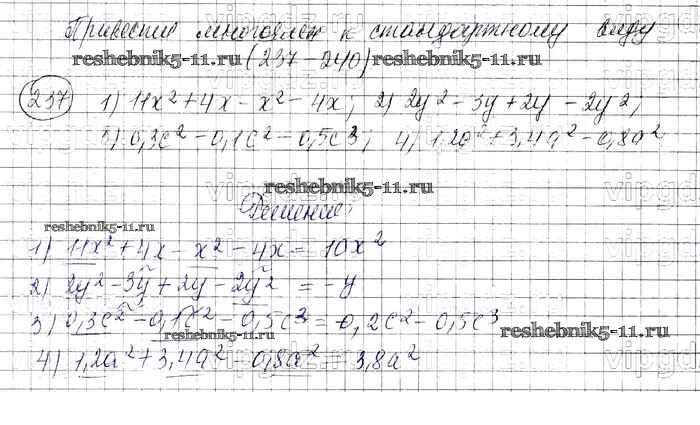 Привести многочлен к стандартному виду
reshebnik5-11.ru (237-240)
237 1) 11x² + 4x - x² - 4x; 2) 2y² - 3y + 2y - 2y²;
3) 0,3c² - 0,1c² - 0,5c³; 4) 1,2a² + 3,4a² - 0,8a²
reshebnik5-11.ru
Решение:
reshebnik5-11.ru
1) 11x² + 4x - x² - 4x = 10x²
2) 2y² - 3y + 2y - 2y² = -y
3) 0,3c² - 0,1c² - 0,5c³ = 0,2c² - 0,5c³
reshebnik5-11.ru
4) 1,2a² + 3,4a² - 0,8a² = 3,8a²
reshebnik5-11.ru